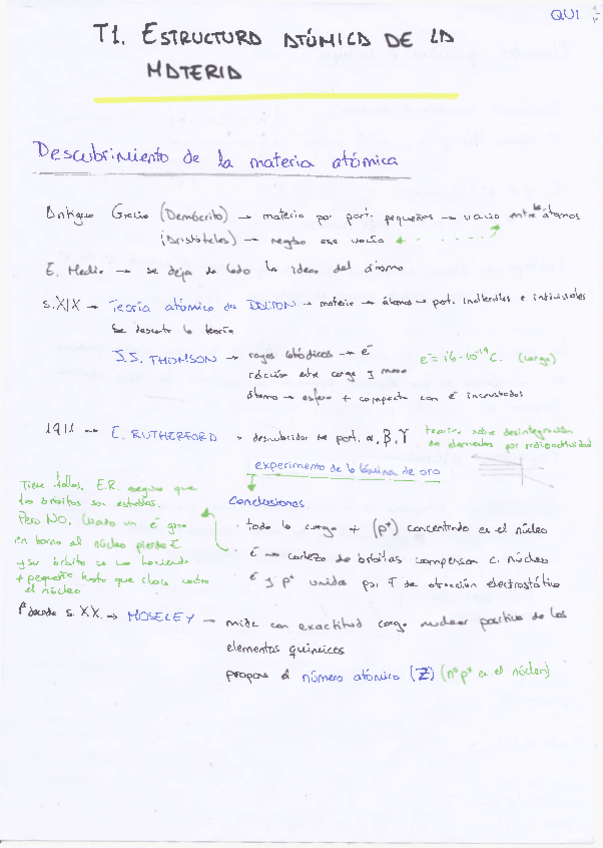 QUI
T1. ESTRUCTURA ATÓMICA DE LA
MATERIA
Descubrimiento de la materia atómica
Antigua Grecia (Demócrito) → materia por part. pequeñas → vacío entre los átomos
(Aristóteles) → negaba ese vacío
E. Media → se deja de lado la idea del átomo
s.XIX → Teoría atómica de DALTON → materia → átomos → part. indivisibles e
se descarta la teoría
J.J. THOMSON → rayos catódicos → e⁻ e⁻ = 1'6·10⁻¹⁹ C. (carga)
relación entre carga y masa
átomo → esfera + compacta con e⁻ incrustados
1911 → E. RUTHERFORD → descubridor de part. α, β, γ teoría sobre desintegración
de elementos por radioactividad
experimento de la lámina de oro
Tiene fallos, E.R. asegura que
las órbitas son estables.
Pero NO, cuando un e⁻ gira
en torno al núcleo pierde E
y su órbita se va haciendo
+ pequeña hasta que choca contra
el núcleo
Conclusiones
· toda la carga + (p⁺) concentrada en el núcleo
· e⁻ → corteza de órbitas compensan c. núcleo
e⁻ y p⁺ unidos por F de atracción electrostática
1ª década s. XX. → MOSELEY → mide con exactitud carga nuclear positiva de los
elementos químicos
propone el número atómico (Z) (nº p⁺ en el núcleo)